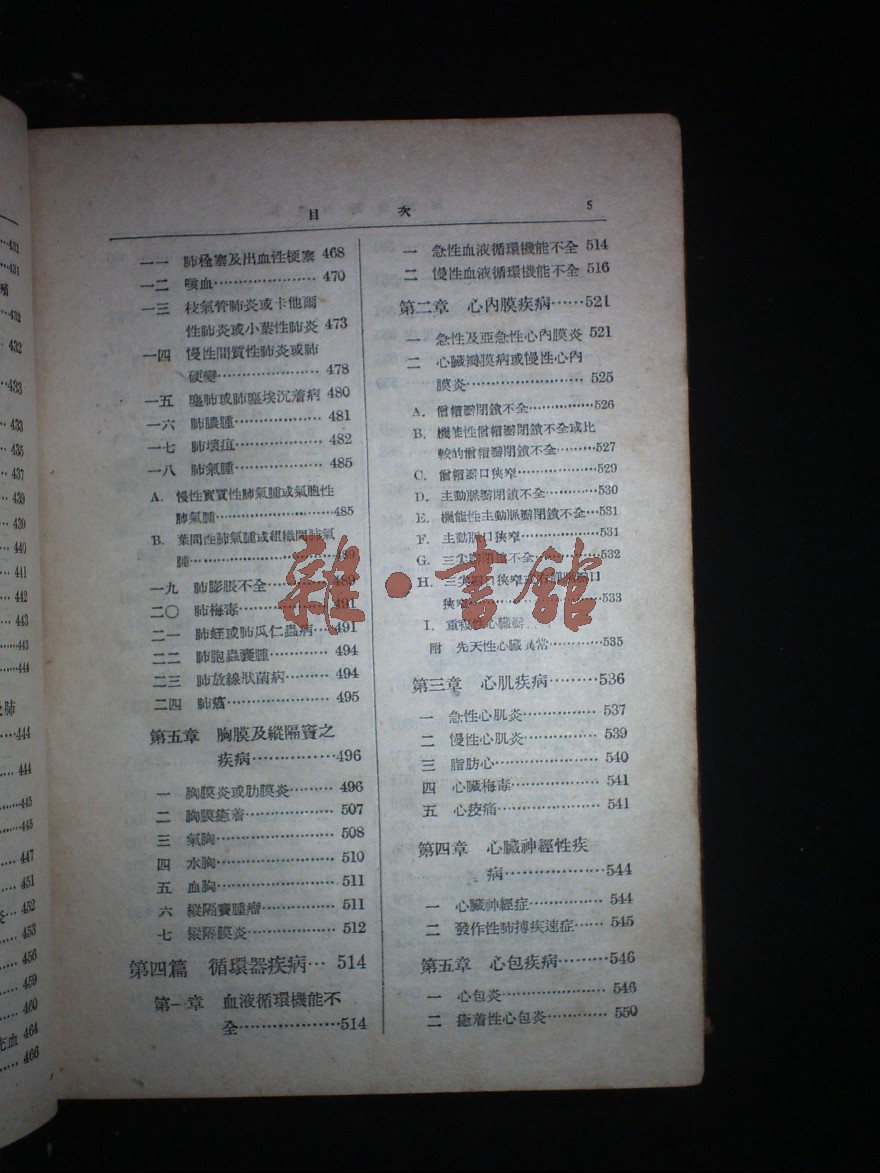 431
431
432
432
433
433
435
435
437
439
439
440
441
442
443
444
肺
444
444
445
445
447
451
452
453
456
459
460
血 464
466
目 次 5
一一 肺栓塞及出血性梗塞 468
一二 咳血………………470
一三 枝氣管肺炎或卡他爾
性肺炎或小葉性肺炎 473
一四 慢性間質性肺炎或肺
硬變………………478
一五 塵肺或肺塵埃沉着病 480
一六 肺膿腫……………481
一七 肺壞疽……………482
一八 肺氣腫……………485
A. 慢性實質性肺氣腫或氣胞性
肺氣腫………………485
B. 葉間性肺氣腫或組織間肺氣
腫……………………489
一九 肺膨脹不全………489
二〇 肺梅毒……………491
二一 肺蛭或肺瓜仁蟲病…491
二二 肺胞蟲囊腫………494
二三 肺放線狀菌病……494
二四 肺癌………………495
第五章 胸膜及縱隔竇之
疾病……………496
一 胸膜炎或肋膜炎………496
二 胸膜癒着……………507
三 氣胸…………………508
四 水胸…………………510
五 血胸…………………511
六 縱隔竇腫瘤…………511
七 縱隔膜炎……………512
第四篇 循環器疾病… 514
第一章 血液循環機能不
全………………514
一 急性血液循環機能不全 514
二 慢性血液循環機能不全 516
第二章 心內膜疾病……521
一 急性及亞急性心內膜炎 521
二 心臟瓣膜病或慢性心內
膜炎…………………525
A. 僧帽瓣閉鎖不全……………526
B. 機能性僧帽瓣閉鎖不全或比
較的僧帽瓣閉鎖不全………527
C. 僧帽瓣口狹窄………………529
D. 主動脈瓣閉鎖不全…………530
E. 機能性主動脈瓣閉鎖不全…531
F. 主動脈口狹窄………………531
G. 三尖瓣閉鎖不全……………532
H. 三尖瓣口狹窄或右房脈瓣口
狹窄…………………………533
I. 重複性心臟瓣
附 先天性心臟異常…………535
第三章 心肌疾病………536
一 急性心肌炎……………537
二 慢性心肌炎……………539
三 脂肪心…………………540
四 心臟梅毒………………541
五 心絞痛…………………541
第四章 心臟神經性疾
病…………………544
一 心臟神經症……………544
二 發作性肺搏疾速症……545
第五章 心包疾病………546
一 心包炎…………………546
二 癒着性心包炎…………550
雜·書館